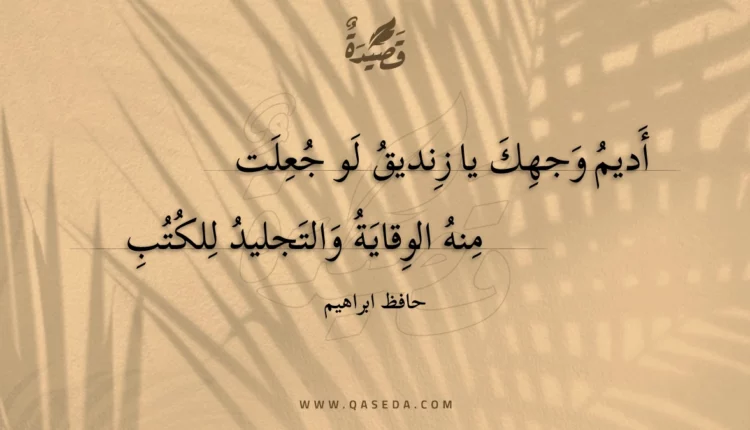 قَصِيدَةٌ
أَديمُ وَجهِكَ يا زِنديقُ لَو جُعِلَت
مِنهُ الوِقايَةُ وَالتَجليدُ لِلكُتُبِ
حافظ ابراهيم
WWW.QASEDA.COM